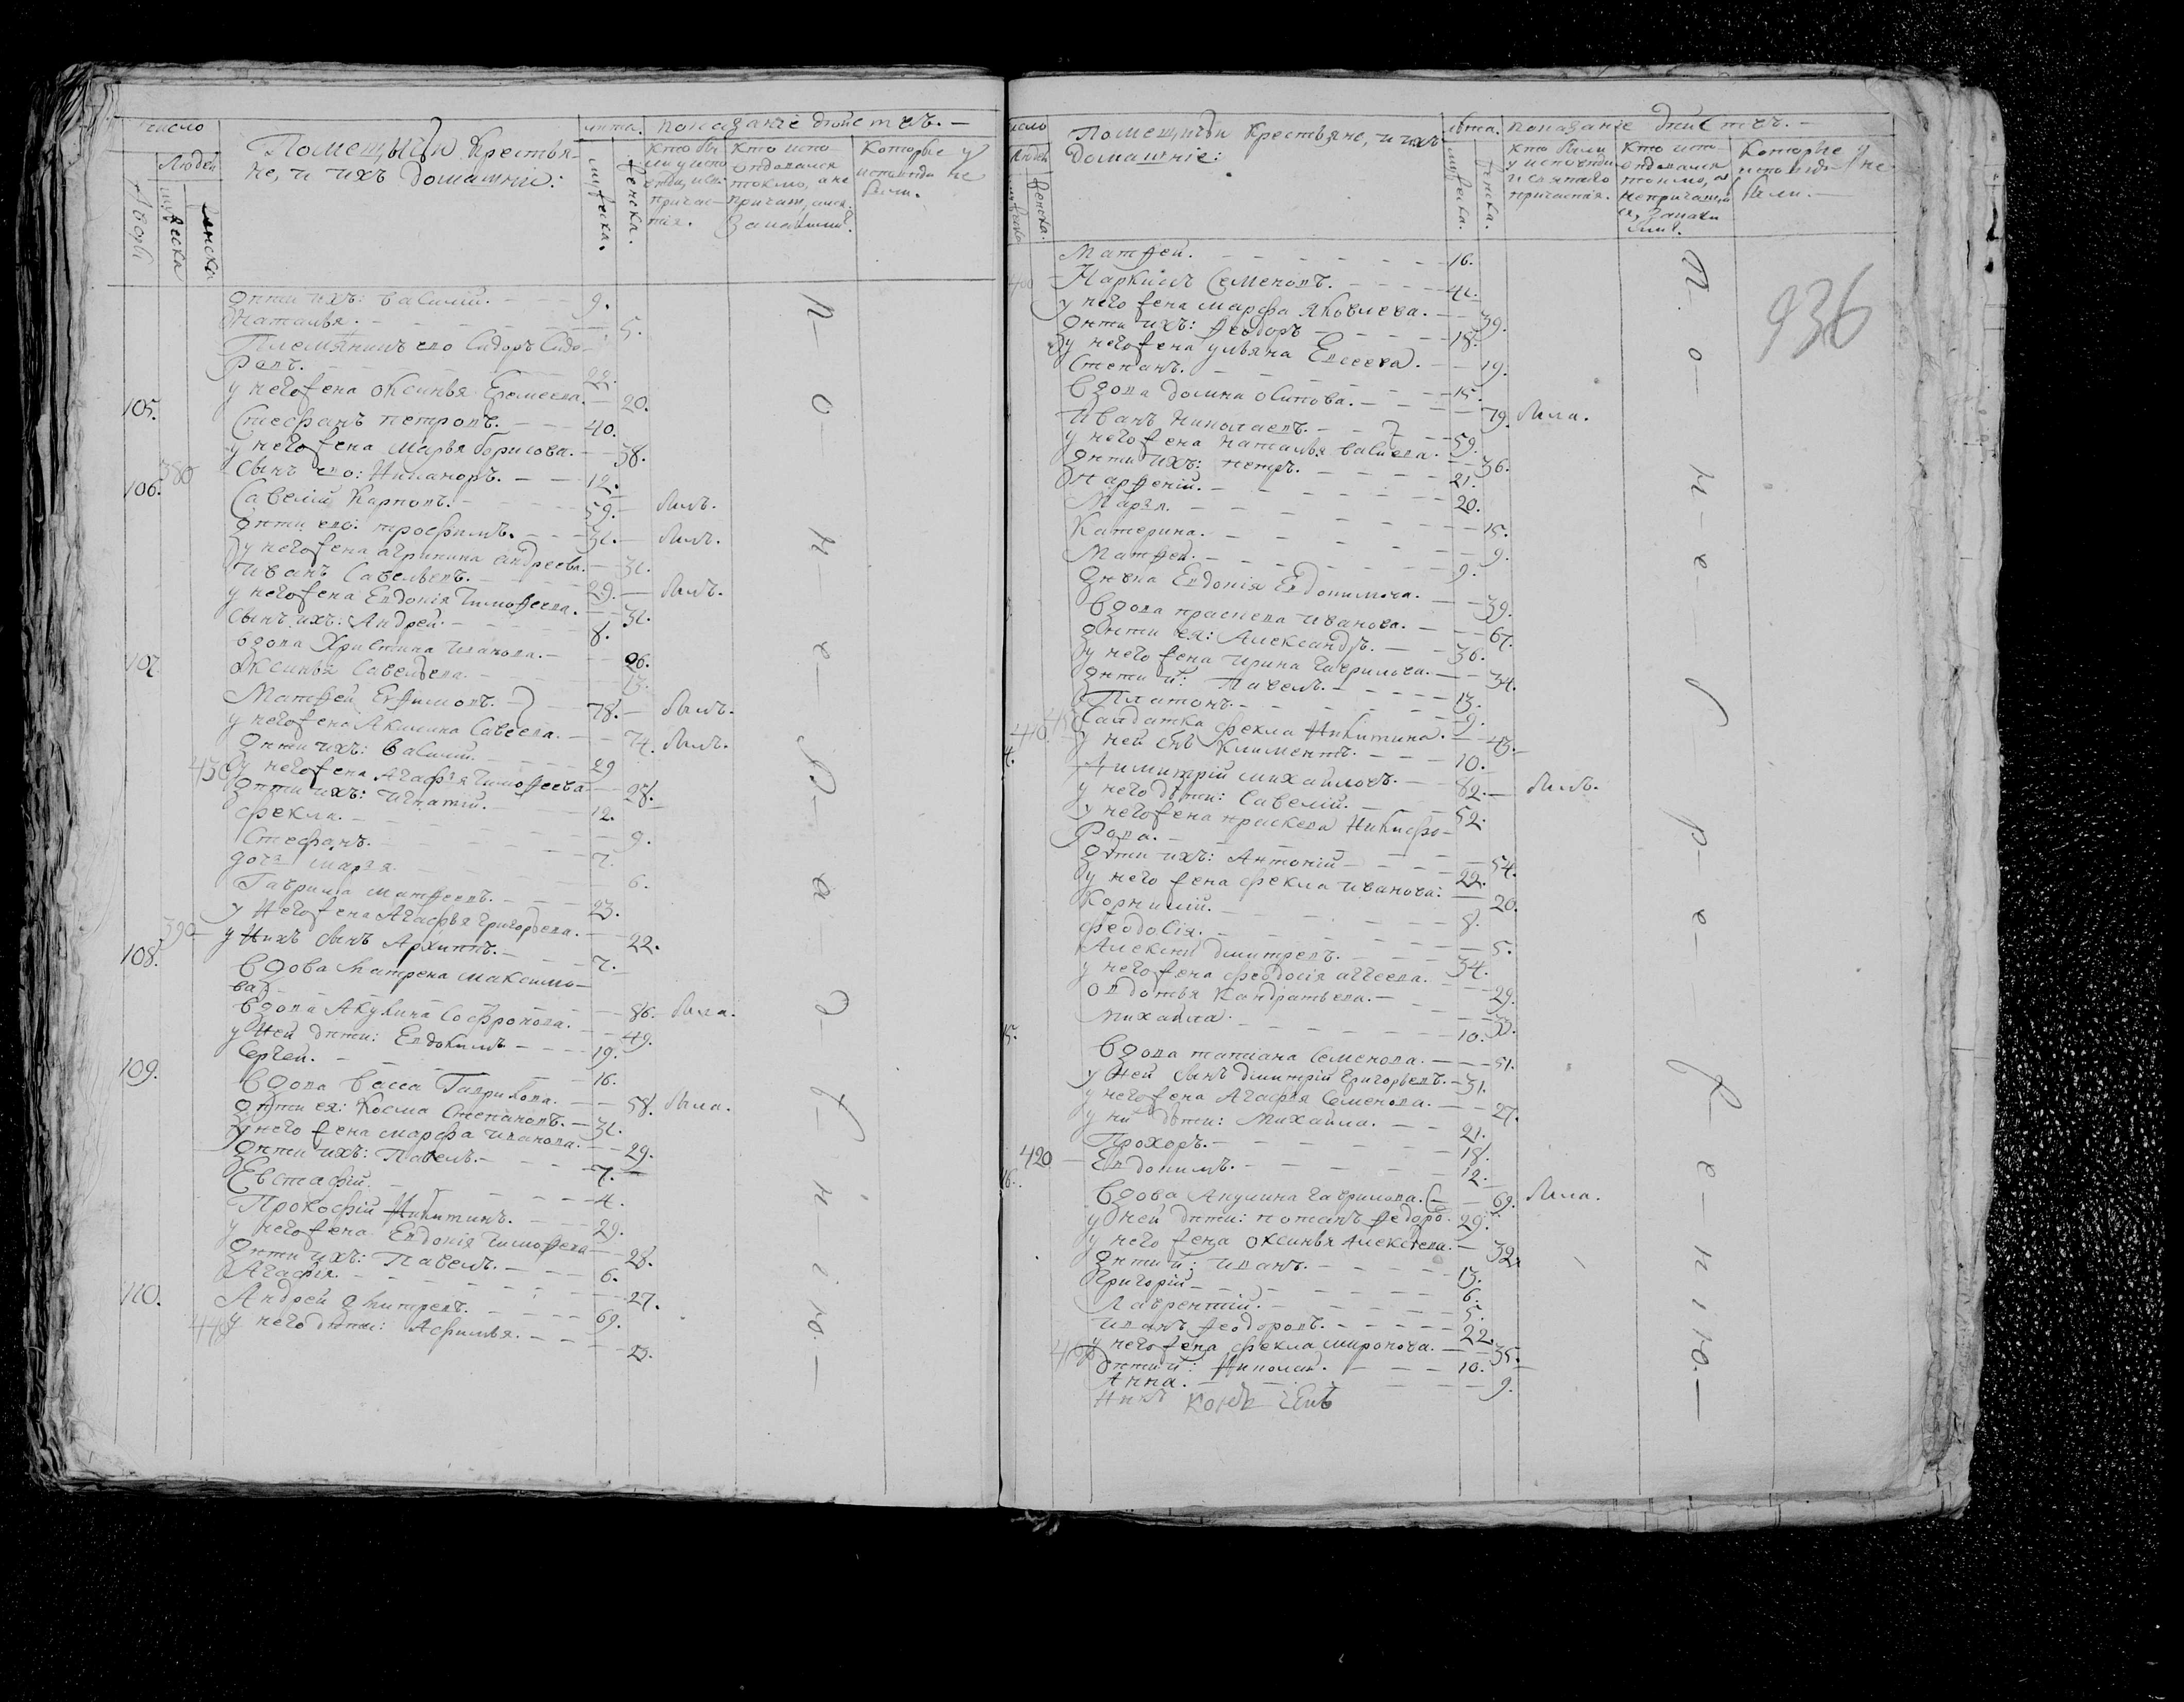 число
Людей
дворы
мужеска
женска
Помещичьи крестья-
не, и ихъ домашнiи:
лѣта.
мужеска.
женска.
показанiе дѣйствъ. —
кто бы
ли у испо
вѣди, и св:
причас-
тiя.
кто испо-
вѣдался
токмо, а не
причаст,
за какимъ.
Которые у
исповѣди не
были.
дѣти ихъ: Василiй. 9.
Наталья. 5.
Племянникъ его Сидоръ Сидо-
ровъ. 22.
у него жена Оксинья Еремеева. 20.
105. Стефанъ Петровъ. 40.
у него жена Марья Борисова. 38.
380 сынъ его: Никаноръ. 12.
106. Савелiй Карповъ. 59. былъ.
дѣти его: Трофимъ. 31. былъ.
у него жена Агрипина Андреева. 31.
Иванъ Савельевъ. 29. былъ.
у него жена Евдокiя Тимофеева. 31.
сынъ ихъ: Андрей. 8.
вдова Христина Иванова. 26.
107. Оксинья Савельева. 13.
Матфей Ефимовъ. 78. былъ.
у него жена Акилина Савеева. 74. былъ.
дѣти ихъ: Василiй. 29
430 у него жена Агафiя Тимофеева 28.
дѣти ихъ: Игнатiй. 12.
Фекла. 9.
Стефанъ. 7.
дочь Марья. 6.
Гаврила Матфеевъ. 23.
у него жена Агафья Григорьева. 22.
390 у нихъ сынъ Архиппъ. 7.
108. Вдова Матрена Максимо-
ва 86. была.
вдова Акулина Софронова. 49.
у ней дѣти: Евдокимъ 19.
Сергей. 16.
109. Вдова Васса Гаврилова. 58. была.
дѣти ея: Косма Степановъ. 31.
у него жена Марфа Иванова. 29.
дѣти ихъ: Павелъ. 7.
Евстафiй. 4.
Прокофiй Никитинъ. 29.
у него жена Евдокiя Тимофеева 28.
дѣти ихъ: Павелъ. 6.
Агафiя. 27.
110. Андрей Дмитревъ. 69.
440 у него дѣти: Афимья. 23.
П-о-н-е-р-а-д-ѣ-н-i-ю. —
число
людей
мужеска
женска.
Помещичьи крестьяне, и ихъ
домашнiе:
лѣта.
мужеска.
женска.
показанiе дѣйствъ. —
кто были
у исповѣди
и святаго
причастiя.
кто испо-
вѣдался
токмо, а
не причащал
ся, за какимъ
Которые у
исповѣди не
были. —
936
Матфей. 16.
400 Наркизъ Семеновъ. 41.
у него жена Марфа Яковлева. 39.
дѣти ихъ: Феодоръ 18.
у него жена Ульяна Евсеева. 19.
Степанъ. 15.
Вдова Домна Осипова. 79. была.
Иванъ Николаевъ. 59.
у него жена Наталья Васиева. 36.
дѣти ихъ: Петръ. 21.
Парфенiй. 20.
Марья. 15.
Катерина. 9.
Матфей. 9.
дѣвка Евдокiя Евдокимова. 39.
Вдова Праскева Иванова. 67.
дѣти ея: Александръ. 36.
у него жена Ирина Гаврилова. 34.
дѣти и: Павелъ. 13.
Платонъ. 9.
410 Салдатка Фекла Никитина. 43.
у ней сынъ Климентъ. 10.
Димитрiй Михайловъ. 82. былъ.
у него дѣти: Савелiй. 52.
у него жена Праскева Никифо-
рова. 54.
дѣти ихъ: Антонiй 22.
у него жена Фекла Иванова: 20.
Корнилiй. 8.
Феодосiя. 5.
Алексѣй Дмитревъ. 34.
у него жена Феодосiя Аггеева. 29.
Овдотья Кондратьева. 33.
Михайла. 10.
Вдова Татiана Семенова. 51.
у ней сынъ Дмитрiй Григорьевъ. 31.
у него жена Агафiя Семенова. 27.
у ни дѣти: Михайла. 21.
Прохоръ. 18.
420 Евдокимъ. 12.
Вдова Акулина Гаврилова. 69. была.
у ней дѣти: Потапъ Федоро. 29.
у него жена Оксинья Алексѣева. 32.
дѣти и: Иванъ. 13.
Григорiй 6.
Лаврентiй. 5.
Иванъ Феодоровъ. 22.
у него жена Фекла Миронова. 35.
дѣти и: Николай. 10.
Анна. 9.
П-о-н-е-б-р-е-ж-е-н-i-ю. —